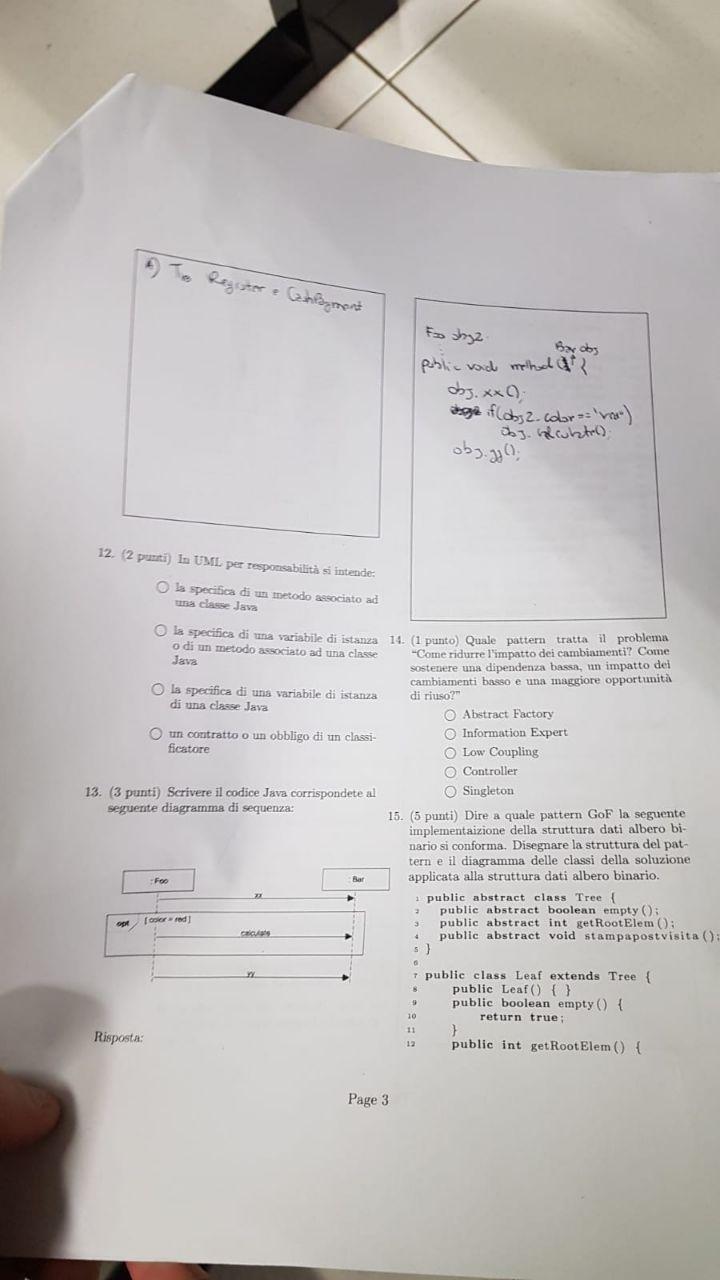 A) Tra Register e CashPayment
12. (2 punti) In UML per responsabilità si intende:
la specifica di un metodo associato ad
una classe Java
la specifica di una variabile di istanza
o di un metodo associato ad una classe
Java
la specifica di una variabile di istanza
di una classe Java
un contratto o un obbligo di un classi-
ficatore
13. (3 punti) Scrivere il codice Java corrispondete al
seguente diagramma di sequenza:
: Foo
: Bar
xx
opt
[color = red]
calculate
yy
Risposta:
Foo obj2
Bar obj
public void method( ) {
obj.xx();
if(obj2.color == "
obj.
obj.yy();
14. (1 punto) Quale pattern tratta il problema
"Come ridurre l'impatto dei cambiamenti? Come
sostenere una dipendenza bassa, un impatto dei
cambiamenti basso e una maggiore opportunità
di riuso?"
Abstract Factory
Information Expert
Low Coupling
Controller
Singleton
15. (5 punti) Dire a quale pattern GoF la seguente
implementaizione della struttura dati albero bi-
nario si conforma. Disegnare la struttura del pat-
tern e il diagramma delle classi della soluzione
applicata alla struttura dati albero binario.
1 public abstract class Tree {
2 public abstract boolean empty();
3 public abstract int getRootElem();
4 public abstract void stampapostvisita();
5 }
6
7 public class Leaf extends Tree {
8 public Leaf() { }
9 public boolean empty() {
10 return true;
11 }
12 public int getRootElem() {
Page 3